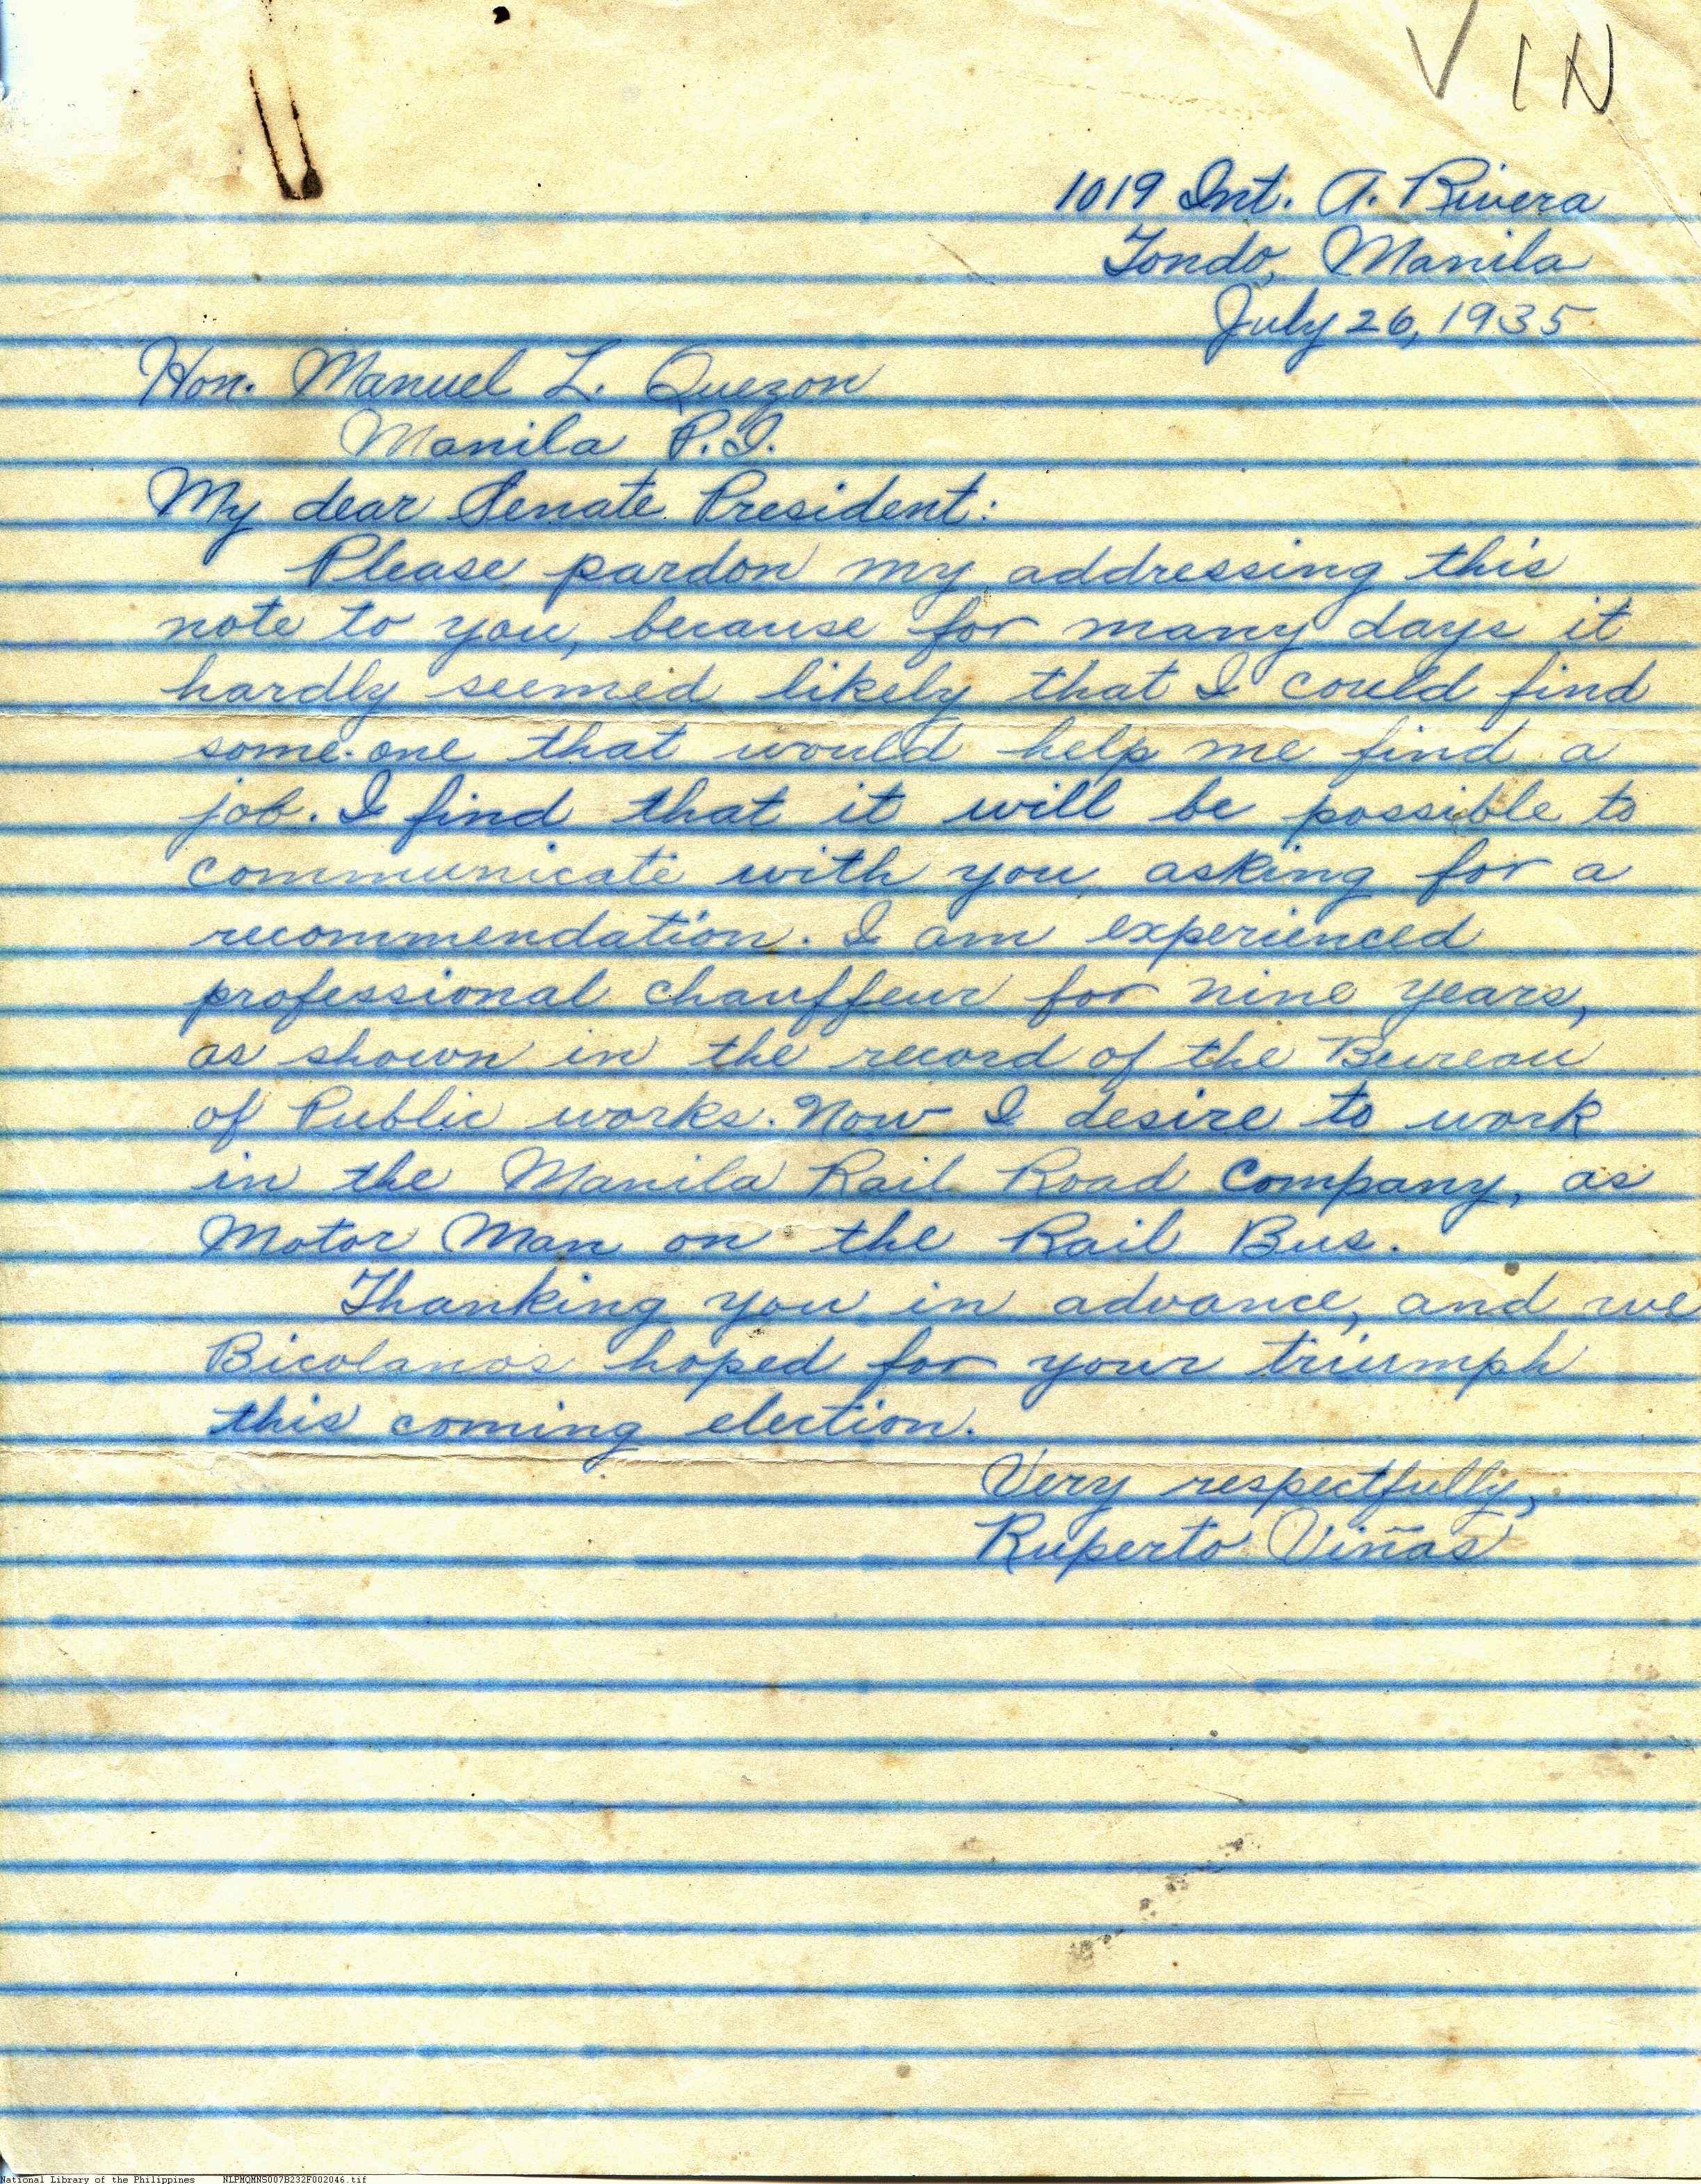 VIN
1019 Int. A. Rivera
Tondo, Manila
July 26, 1935
Hon. Manuel L. Quezon
Manila P.I.
My dear Senate President:
Please pardon my addressing this
note to you, because for many days it
hardly seemed likely that I could find
some-one that would help me find a
job. I find that it will be possible to
communicate with you asking for a
recommendation. I am experienced
professional chauffeur for nine years,
as shown in the record of the Bureau
of Public works. Now I desire to work
in the Manila Rail Road Company, as
Motor Man on the Rail Bus.
Thanking you in advance, and we
Bicolanos hoped for your triumph
this coming election.
Very respectfully,
Ruperto Viñas
National Library of the Philippines NLPMQMNS007B232F002046.tif